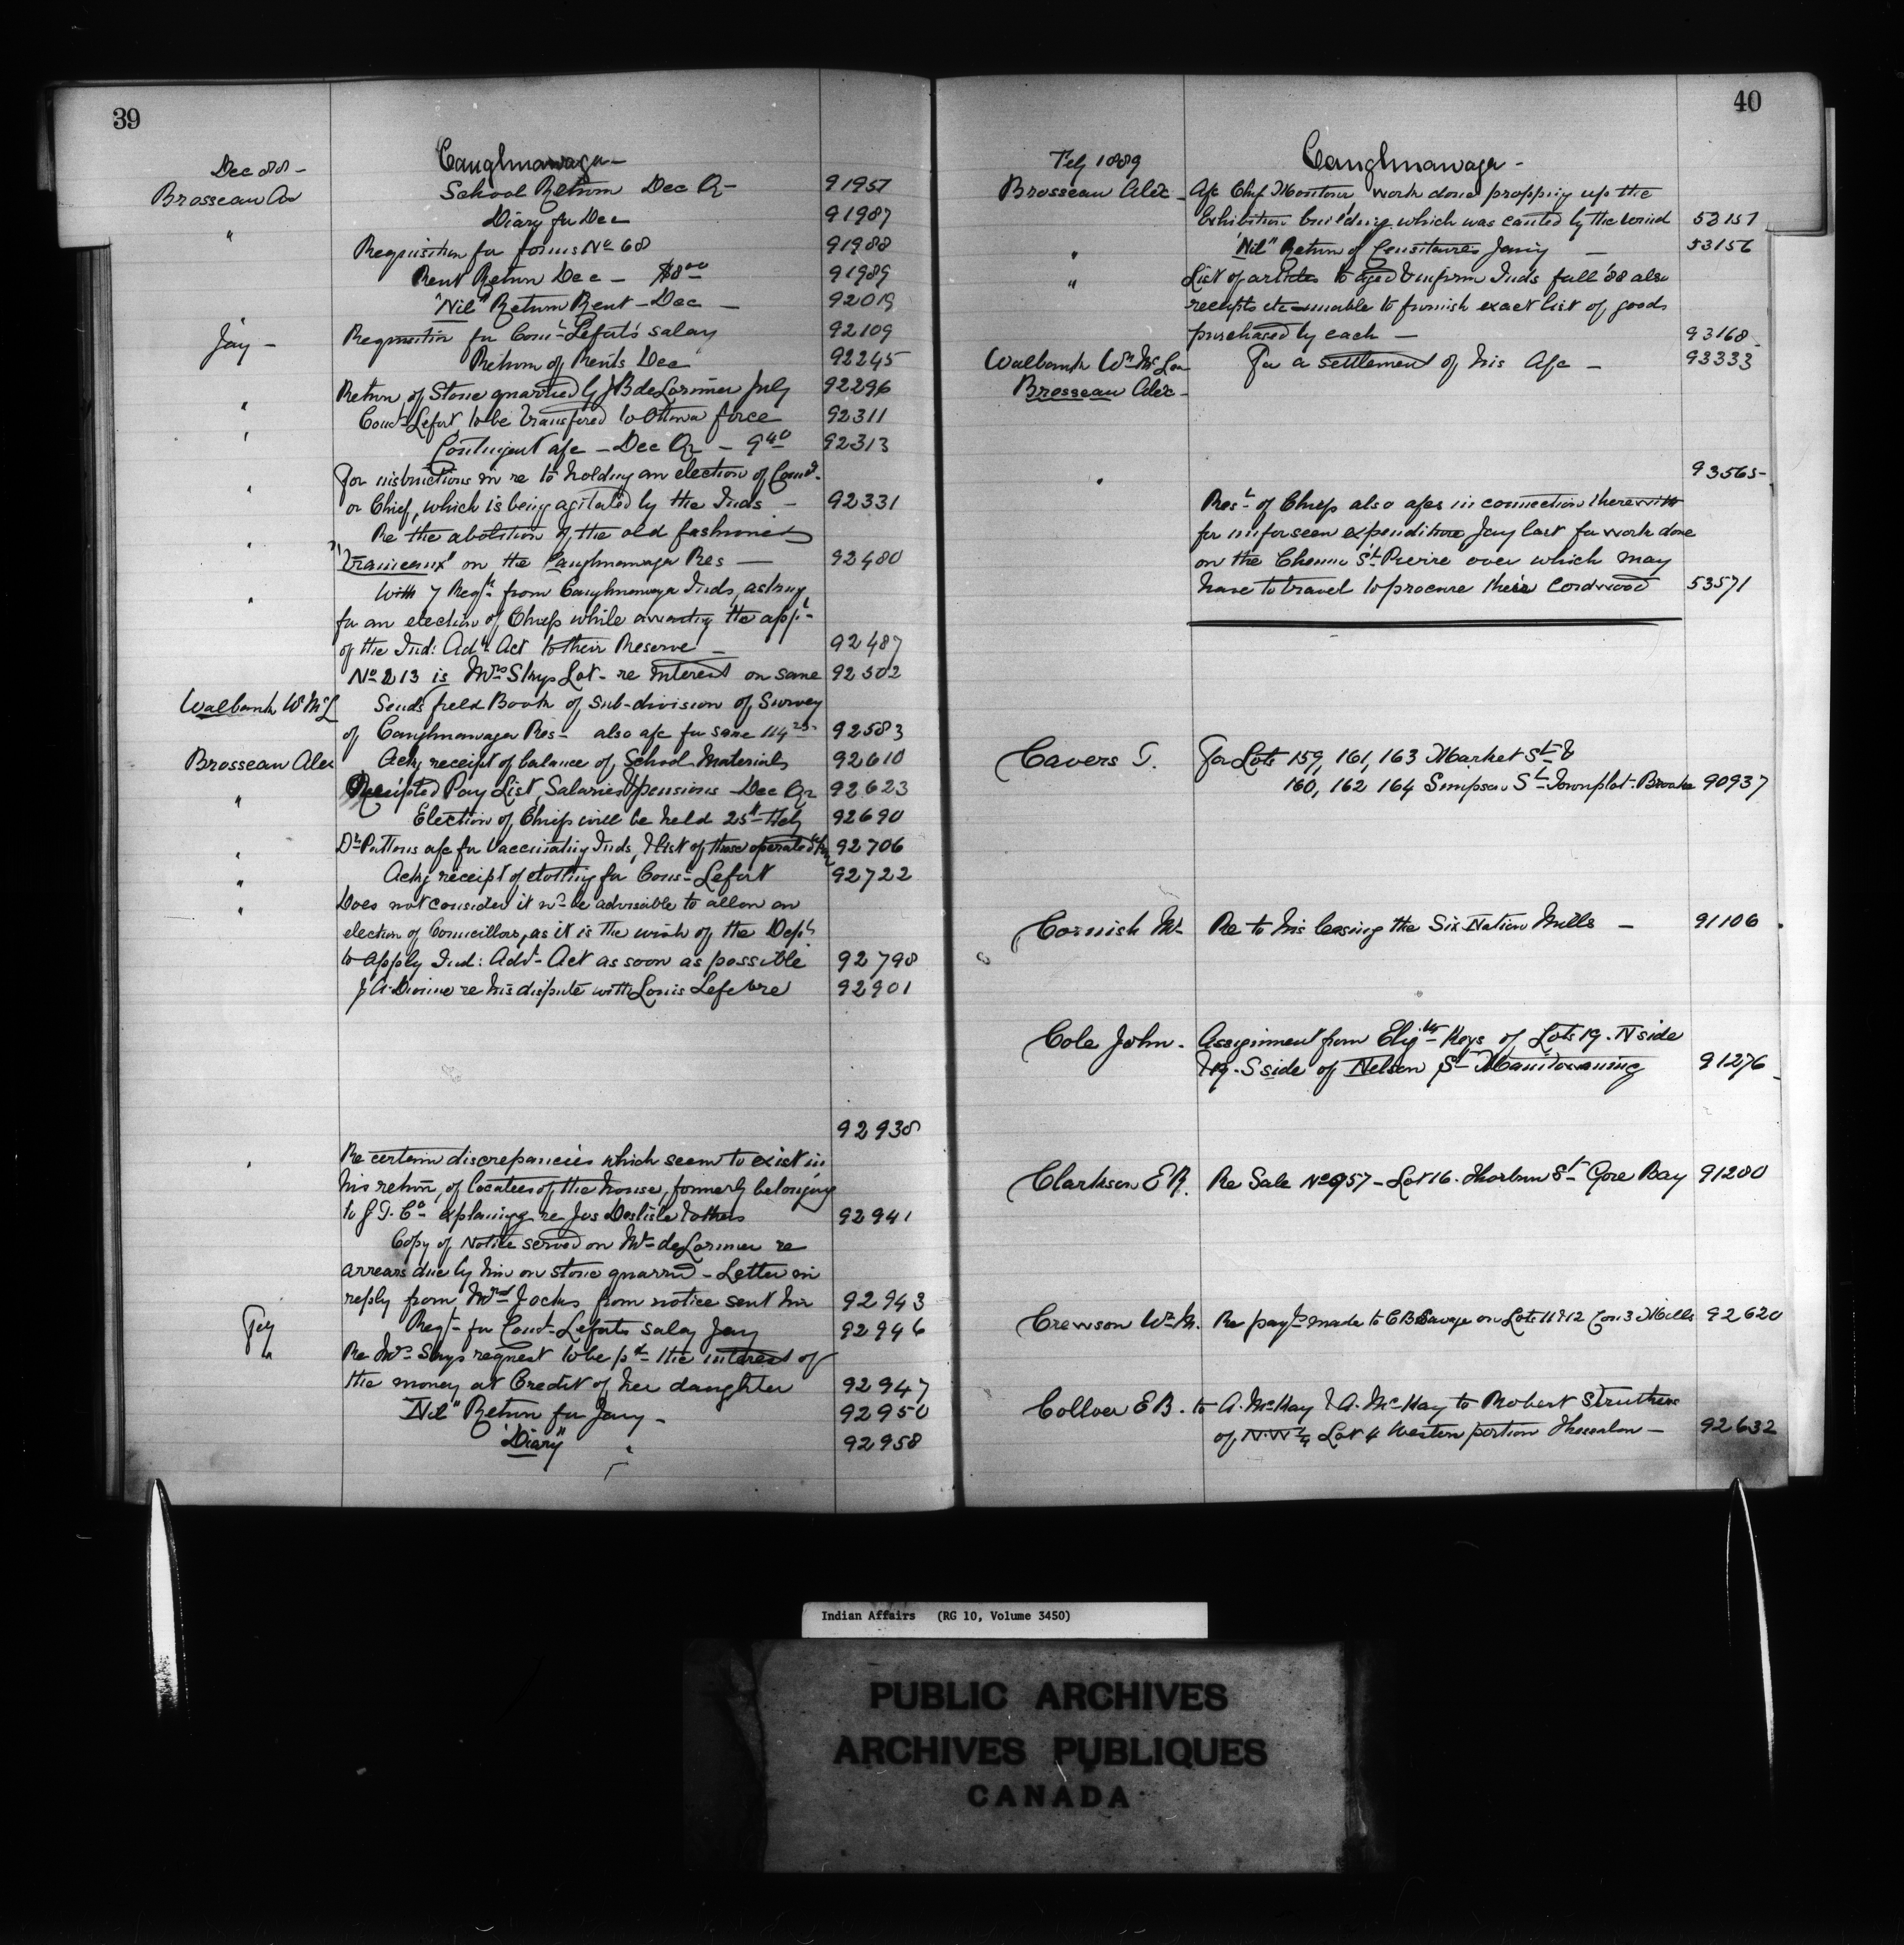 39
Dec 88 - Caughnawaga -
Brosseau Ax School Return Dec Qr - 91957
Diary for Dec 91987
" Requisition for forms No 68 91988
Rent Return Dec - $8.00 91989
"Nil" Return Rent - Dec - 92019
Jay - Requisition for Const Lefort's salary 92109
Return of Rents Dec 92245
Return of Stone quarried by J B de Lorimier July 92296
" Const Lefort to be transfered to Ottawa force 92311
" Contingent a/c - Dec Qr - 9.40 92313
" For instructions in re to holding an election of Councl
or Chief, which is being agitated by the Inds - 92331
" Re the abolition of the old fashioned
"Traineaux" on the Caughnawaga Res - 92480
" With 7 Reqts from Caughnawaga Inds, asking
for an election of Chiefs while awaiting the appt
of the Ind: Advt Act to their Reserve - 92487
No 213 is Mrs Skys Lot - re Interest on same 92502
Walbank W McL Sends field Book of sub-division of Survey
of Caughnawaga Res - also a/c for same 114.25 92583
Brosseau Alex Ackg receipt of balance of School Materials 92610
" Receipted Pay List, Salaries & pensions - Dec Qr 92623
Election of Chiefs will be held 25th Feby 92690
" Dr Pattons a/c for vaccinating Inds, & list of those operated on 92706
" Ackg receipt of clothing for Cons - Lefort 92722
" Does not consider it wd be advisable to allow an
election of Councillors, as it is the wish of the Dept
to apply Ind: Advt Act as soon as possible 92798
J A Dionne re his dispute with Louis Lefebvre 92901
92938
" Re certain discrepancies which seem to exist in
his return, of locatees of the house, formerly belonging
to G. T. Co explaining re Jos Deslisle & others 92941
Copy of Notice served on Mr de Lorimier re
arrears due by him on stone quarried - Letter in
reply from Mrs Jocks from notice sent him 92943
Feby Reqt for Const Leforts salary Jany 92946
" Re Mrs Skys request to be pd the interest of
the money at Credit of her daughter 92947
"Nil" Return for Jany - 92950
"Diary" " 92958
40
Feby 1889 Caughnawaga -
Brosseau Alex - A/c Chf Montour, work done propping up the
Exhibition building which was canted by the wind 53151
" "Nil" Return of Censitaires Jany - 53156
" List of articles to aged & infirm Inds fall '88 also
receipts etc - unable to furnish exact list of goods
purchased by each - 93168
Walbank Wm McLea For a settlement of his A/c - 93333
Brosseau Alex -
93565
" Rest of Chiefs also a/cs in connection therewith
for unforseen expenditure Jany last for work done
on the Chemin St Pierre over which may
have to travel to procure their cordwood 53571
Cavers T. For Lots 159, 161, 163 Market St &
160, 162 164 Simpson St Townplot - Brooke 90937
Cornish M Re to his leasing the Six Nation Mills - 91106
Cole John - Assignment from Elizth Keys of Lots 19 - N side
& 19 - S side of Nelson St Manitowaning 91276
Clarkson E R. Re Sale No 957 - Lot 16 - Thorburn St Gore Bay 91280
Crewson Wm M. Re payt made to C B Savage on Lots 11 & 12 Con 3 Mills 92620
Collver E B. to A. McKay & A. McKay to Robert Struthers
of N.W ¼ Lot 4 Western portion Thessalon - 92632
Indian Affairs (RG 10, Volume 3450)
PUBLIC ARCHIVES
ARCHIVES PUBLIQUES
CANADA